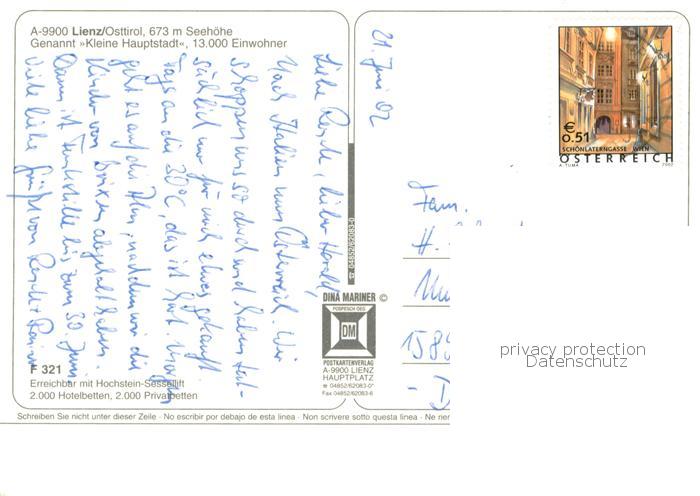 A-9900 Lienz/Osttirol, 673 m Seehöhe
Genannt »Kleine Hauptstadt«, 13.000 Einwohner
21. Juni 02
Liebe, lieber Harald,
Nach Italien nun Österreich. Wir
shoppen uns so durch und haben
nur für mich etwas gekauft.
Tags an die 30°C, das ist hart. Morgen
geht es auf die Alm, nachdem wir die
Kinder von Brixen abgeholt haben.
Dann ist Funkstille bis zum 30. Juni
Viele liebe Grüße von
F 321
Erreichbar mit Hochstein-Sessellift
2.000 Hotelbetten, 2.000 Privatbetten
☎ 04852/62083-0
DINA MARINER ©
POSPESCH OEG
DM
POSTKARTENVERLAG
A-9900 LIENZ
HAUPTPLATZ
☎ 04852/62083-0*
Fax 04852/62083-6
€ 0.51
SCHÖNLATERNGASSE WIEN
ÖSTERREICH
A. TUMA 2002
Fam.
H.
158
- D
privacy protection
Datenschutz
Schreiben Sie nicht unter dieser Zeile · No escribir por debajo de esta linea · Non scrivere sotto questa linea · Ne